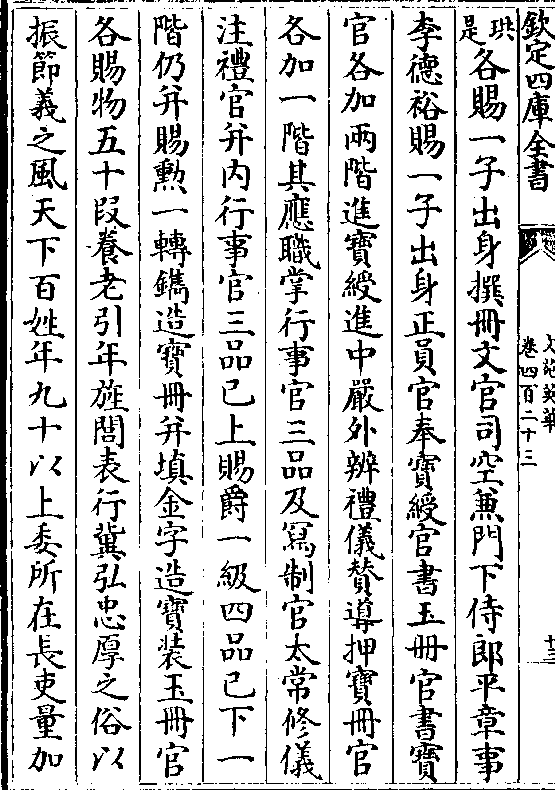 欽定四庫全書
卷四百二十三
珙是各賜一子出身撰冊文官司空兼門下侍郎平章事
李德裕賜一子出身正員官奉寶綬官書玉冊官書寶
官各加兩階進寶綬進中嚴外辦禮儀贊導押寶冊官
各加一階其應職掌行事官三品及寫制官太常修儀
注禮官并內行事官三品已上賜爵一級四品已下一
階仍并賜勲一轉鐫造寶冊并填金字造寶裝玉冊官
各賜物五十段養老引年旌閭表行冀弘忠厚之俗以
振節義之風天下百姓年九十以上委所在長吏量加